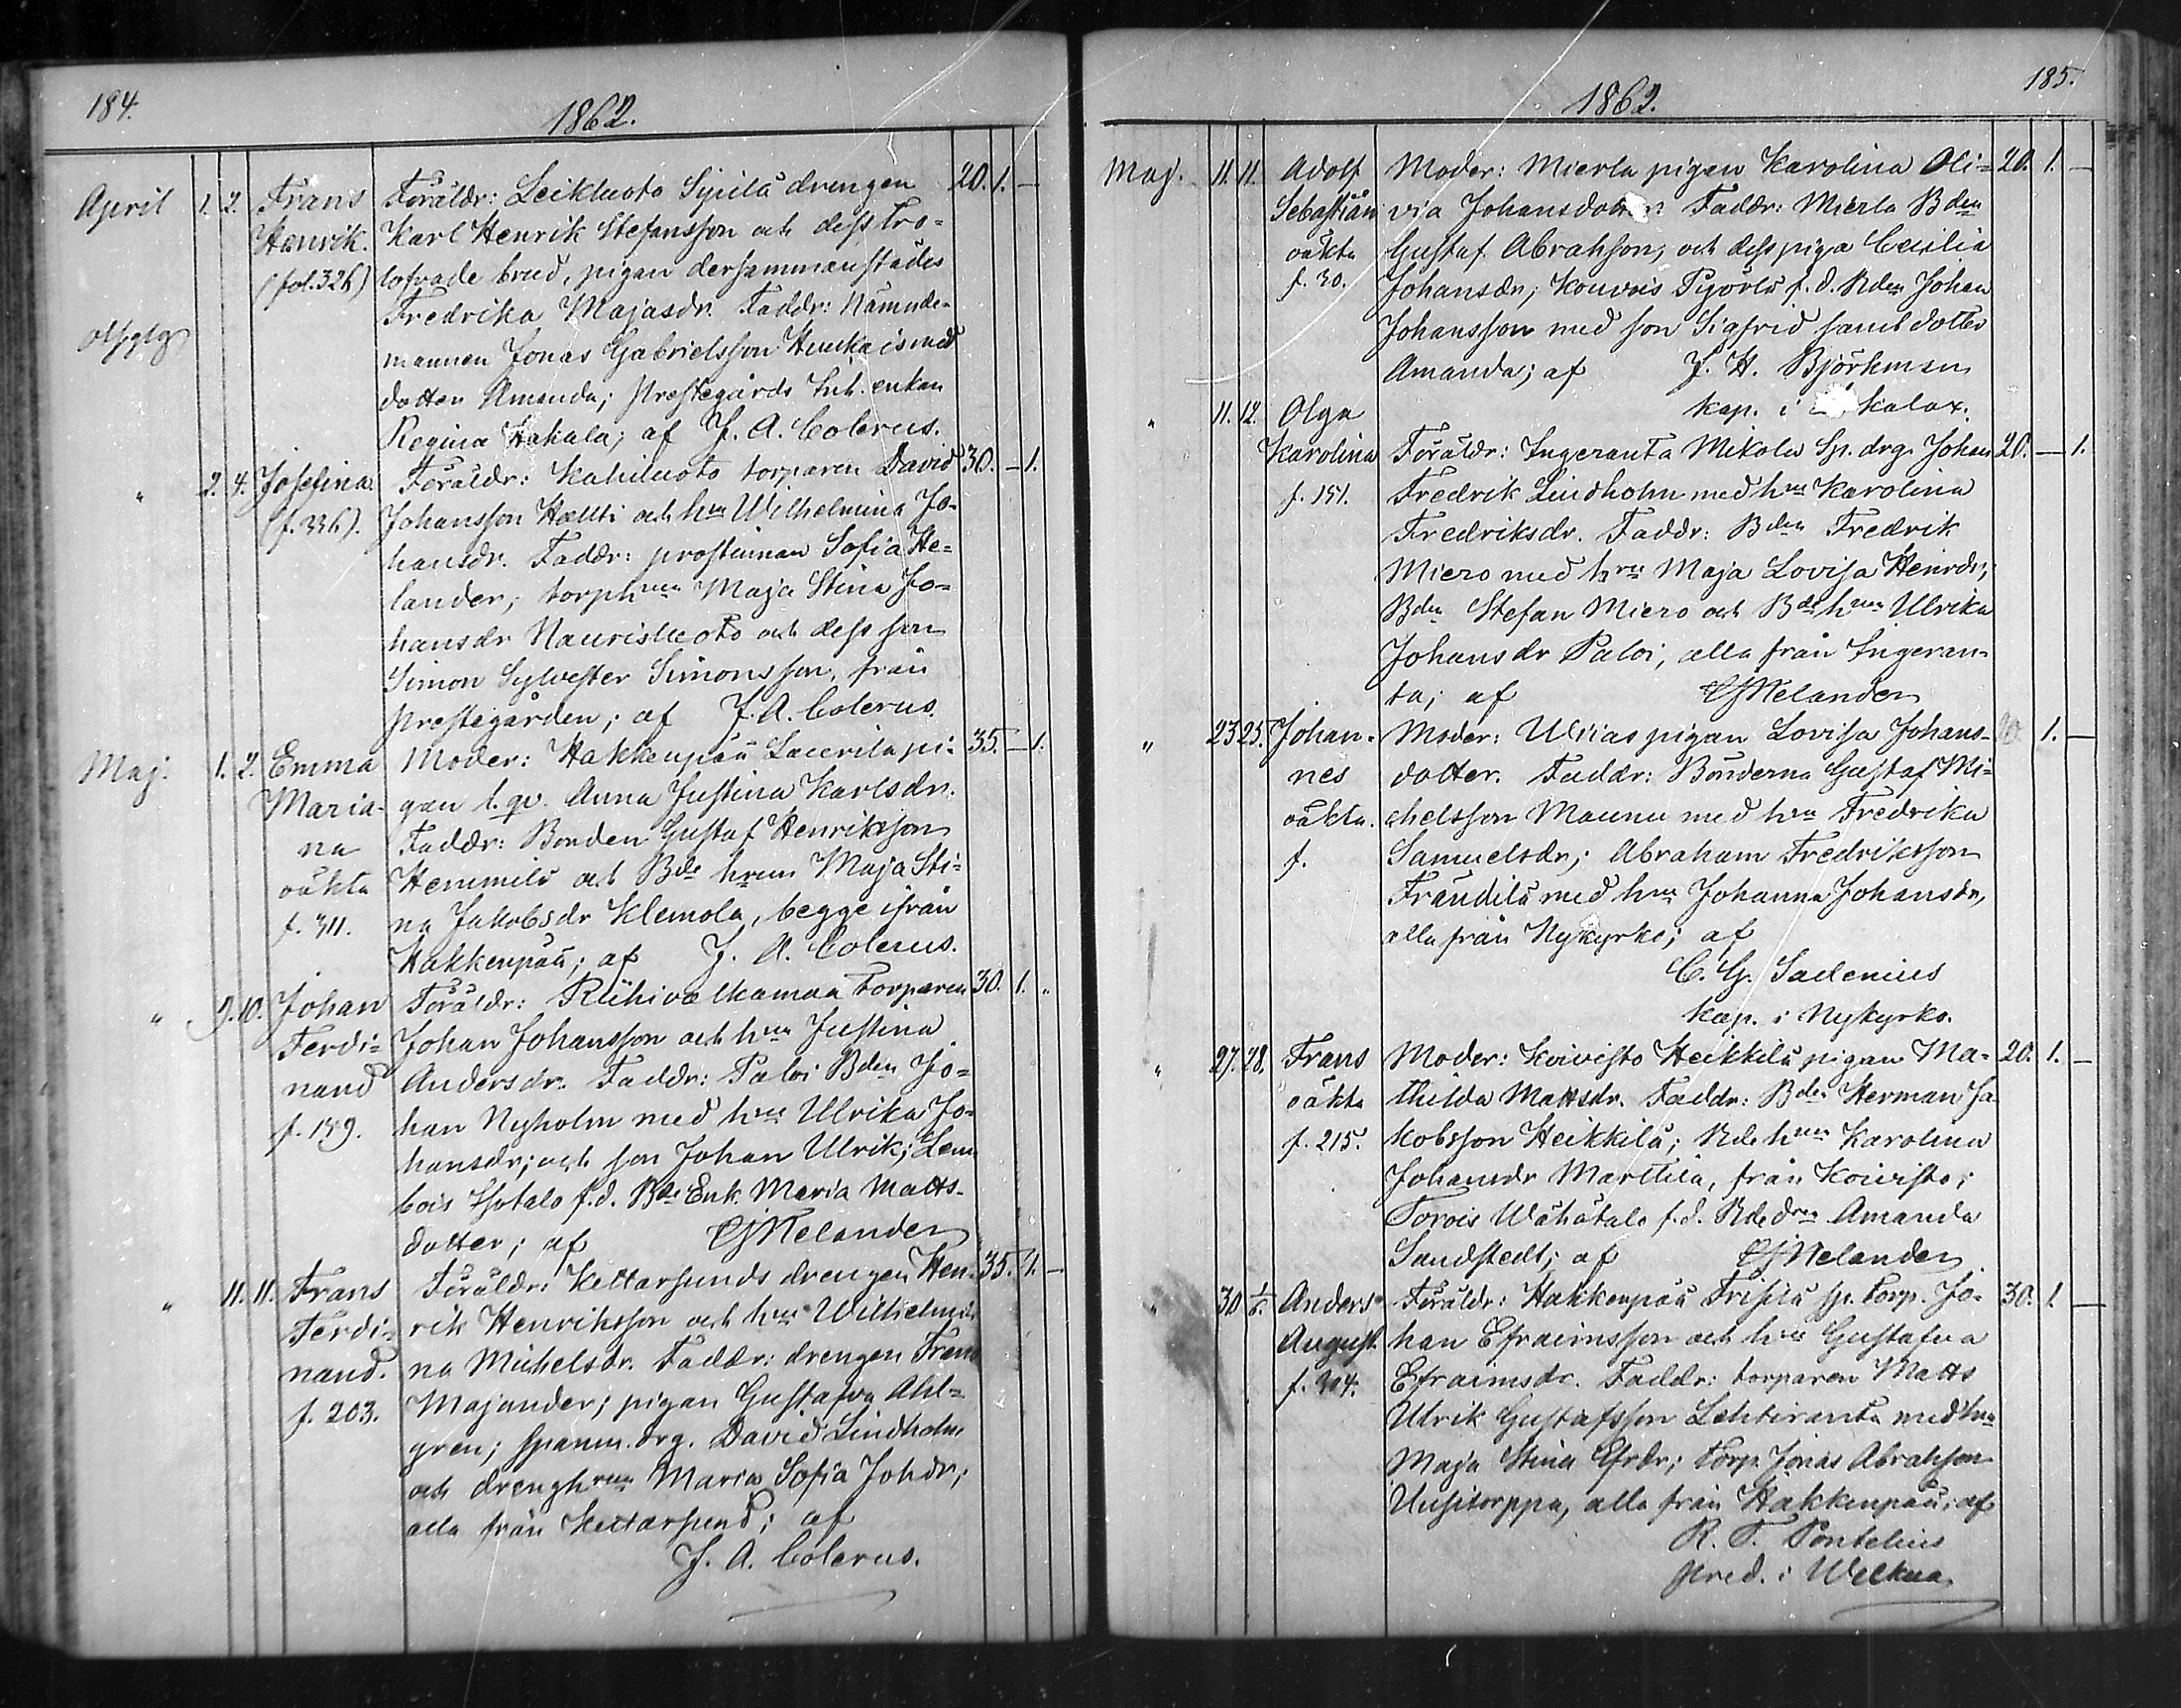 184.
1862.
April 1. 2. Frans Föräldr: Leikluoto Sipilä drengen 20. 1. —
Henrik. Karl Henrik Stefansson och dess tro-
(fol. 326) lofvade brud, pigan dersammanstädes
Fredrika Majasdr. Faddr: Nämnde-
mannen Jonas Gabrielsson med
dotter Amanda; Prestegårds Inh. enkan
Regina Hakala; af J. A. Colerus.
" 2. 4. Josefina. Föräldr: Kahiluoto torparen David 30. — 1.
(f. 336). Johansson och hru Wilhelmina Jo-
hansdr. Faddr: prostinnan Sofia He-
lander; torphrun Maja Stina Jo-
hansdr Naurisluoto och dess son
Simon Sylvester Simonsson, från
Prestegården; af J. A. Colerus.
Maj. 1. 2. Emma Moder: Hakkenpää Laurila pi- 35. — 1.
Maria- gan l. qv. Anna Justina Karlsdr.
na Faddr: Bonden Gustaf Henriksson
oäkta Hemmilä och Bde hrun Maja Sti-
f. 311. na Jakobsdr Klemola, begge ifrån
Hakkenpää; af J. A. Colerus.
" 9. 10. Johan Föräldr: torparen 30. 1. "
Ferdi- Johan Johansson och hru Justina
nand Andersdr. Faddr: Paloi Bden Jo-
f. 159. han Nyholm med hru Ulrika Jo-
hansdr; och son Johan Ulrik; Lem-
bois Isotalo f. d. Bde Enk. Maria Matts-
dotter; af Helander
" 11. 11. Frans Föräldr: Kettarsunds drengen Hen- 35. 1. —
Ferdi- rik Henriksson och hru Wilhelmi-
nand. na Michelsdr. Faddr: drengen Frans
f. 203. Majander; pigan Gustafva Ahl-
gren; spanm. drg. David Lindholm
och drenghrun Maria Sofia Johdr;
alla från Kettarsund; af
J. A. Colerus.
185.
1862.
Maj. 11. 11. Adolf Moder: Mierla pigan Karolina Oli- 20. 1. —
Sebastian via Johansdotter. Faddr: Mierla Bden
oäkta Gustaf Abrahson, och dess piga Cecilia
f. 30. Johansdr; Kouvois Pyörlä f. d. Bden Johan
Johansson med son Sigfrid samt dotter
Amanda; af J. H. Björkman
kap. i kalax.
" 11. 12. Olga
Karolina Föräldr: Ingeranta Mikola Sp. drg. Johan 20. — 1.
f. 151. Fredrik Lindholm med hru Karolina
Fredriksdr. Faddr: Bden Fredrik
Miero med hru Maja Lovisa Henrdr;
Bden Stefan Miero och Bde hrun Ulrika
Johansdr Paloi, alla från Ingeran-
ta; af Helander
" 23 25. Johan- Moder: pigan Lovisa Johans- 1. —
nes dotter. Faddr: Bönderna Gustaf Mi-
oäkta. chelsson Maunu med hru Fredrika
f. Samuelsdr; Abraham Fredriksson
Frändilä med hru Johanna Johansdr,
alla från Nykyrko; af
C. G. Sadenius
kap. i Nykyrko.
" 27. 28. Frans Moder: Koivisto Heikkilä pigan Ma- 20. 1. —
oäkta thilda Mattsdr. Faddr: Bden Herman Ja-
f. 215. kobsson Heikkilä; Bde hrun Karolina
Johansdr Marttila, från Koivisto;
Torois Wähätalo f. d. Bde drn Amanda
Sandstedt; af Helander
" 30 1/6. Anders Föräldr: Hakkenpää sp. torp. Jo- 30. 1. —
August. han Efraimsson och hru Gustafva
f. Efraimsdr. Faddr: torparen Matts
Ulrik Gustafsson Lehtiranta med hru
Maja Stina Efrdr; torp. Jonas Abrahson
Uusitorppa, alla från Hakkenpää; af
R. T. Pontelius
pred. i Welkua